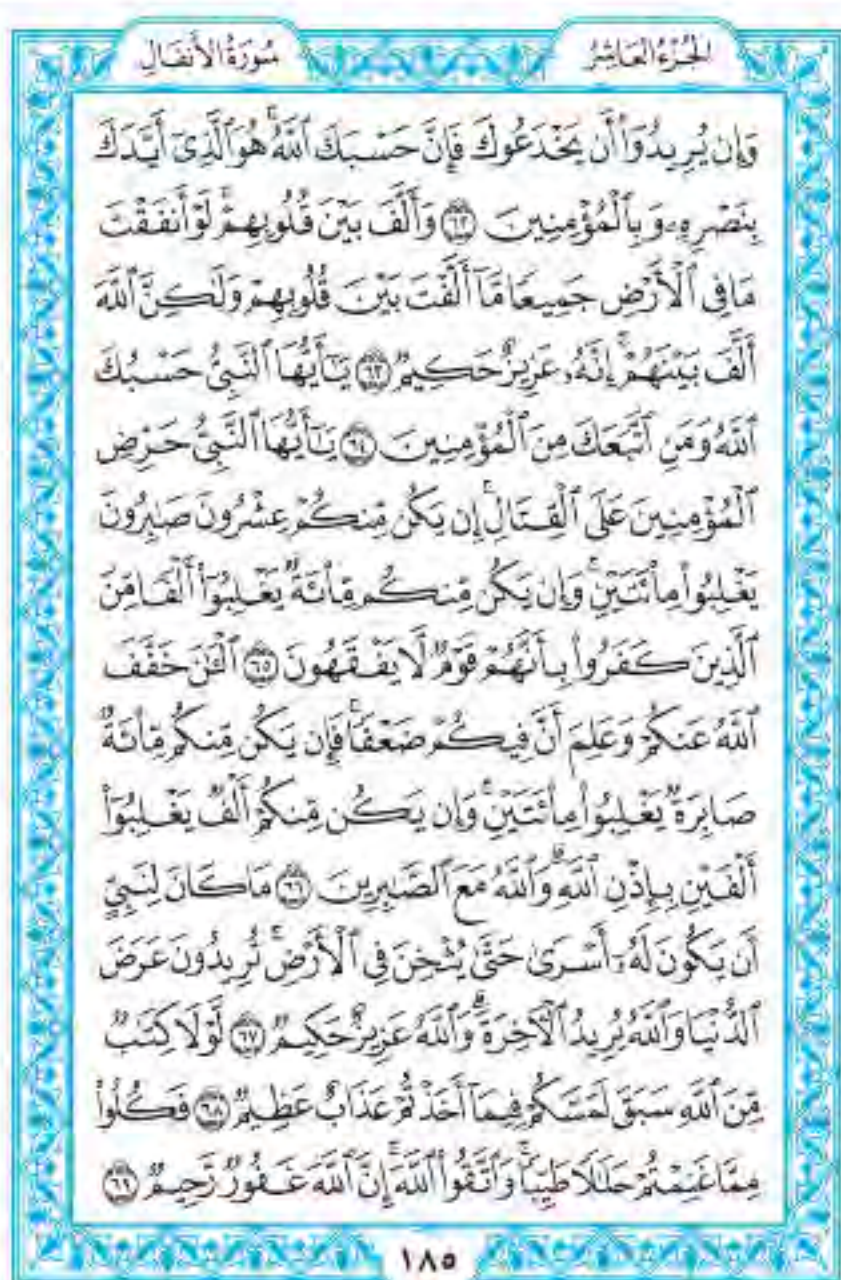 الجُزْءُ العَاشِرُ
سُورَةُ الأَنفَالِ
وَإِن يُرِيدُوٓا۟ أَن يَخْدَعُوكَ فَإِنَّ حَسْبَكَ ٱللَّهُ ۚ هُوَ ٱلَّذِىٓ أَيَّدَكَ
بِنَصْرِهِۦ وَبِٱلْمُؤْمِنِينَ ٦٢ وَأَلَّفَ بَيْنَ قُلُوبِهِمْ ۚ لَوْ أَنفَقْتَ
مَا فِى ٱلْأَرْضِ جَمِيعًا مَّآ أَلَّفْتَ بَيْنَ قُلُوبِهِمْ وَلَٰكِنَّ ٱللَّهَ
أَلَّفَ بَيْنَهُمْ ۚ إِنَّهُۥ عَزِيزٌ حَكِيمٌ ٦٣ يَٰٓأَيُّهَا ٱلنَّبِىُّ حَسْبُكَ
ٱللَّهُ وَمَنِ ٱتَّبَعَكَ مِنَ ٱلْمُؤْمِنِينَ ٦٤ يَٰٓأَيُّهَا ٱلنَّبِىُّ حَرِّضِ
ٱلْمُؤْمِنِينَ عَلَى ٱلْقِتَالِ ۚ إِن يَكُن مِّنكُمْ عِشْرُونَ صَٰبِرُونَ
يَغْلِبُوا۟ مِا۟ئَتَيْنِ ۚ وَإِن يَكُن مِّنكُم مِّا۟ئَةٌ يَغْلِبُوٓا۟ أَلْفًا مِّنَ
ٱلَّذِينَ كَفَرُوا۟ بِأَنَّهُمْ قَوْمٌ لَّا يَفْقَهُونَ ٦٥ ٱلْـَٰٔنَ خَفَّفَ
ٱللَّهُ عَنكُمْ وَعَلِمَ أَنَّ فِيكُمْ ضَعْفًا ۚ فَإِن يَكُن مِّنكُم مِّا۟ئَةٌ
صَابِرَةٌ يَغْلِبُوا۟ مِا۟ئَتَيْنِ ۚ وَإِن يَكُن مِّنكُمْ أَلْفٌ يَغْلِبُوٓا۟
أَلْفَيْنِ بِإِذْنِ ٱللَّهِ ۗ وَٱللَّهُ مَعَ ٱلصَّٰبِرِينَ ٦٦ مَا كَانَ لِنَبِىٍّ
أَن يَكُونَ لَهُۥٓ أَسْرَىٰ حَتَّىٰ يُثْخِنَ فِى ٱلْأَرْضِ ۚ تُرِيدُونَ عَرَضَ
ٱلدُّنْيَا وَٱللَّهُ يُرِيدُ ٱلْءَاخِرَةَ ۗ وَٱللَّهُ عَزِيزٌ حَكِيمٌ ٦٧ لَّوْلَا كِتَٰبٌ
مِّنَ ٱللَّهِ سَبَقَ لَمَسَّكُمْ فِيمَآ أَخَذْتُمْ عَذَابٌ عَظِيمٌ ٦٨ فَكُلُوا۟
مِمَّا غَنِمْتُمْ حَلَٰلًا طَيِّبًا ۚ وَٱتَّقُوا۟ ٱللَّهَ ۚ إِنَّ ٱللَّهَ غَفُورٌ رَّحِيمٌ ٦٩
١٨٥